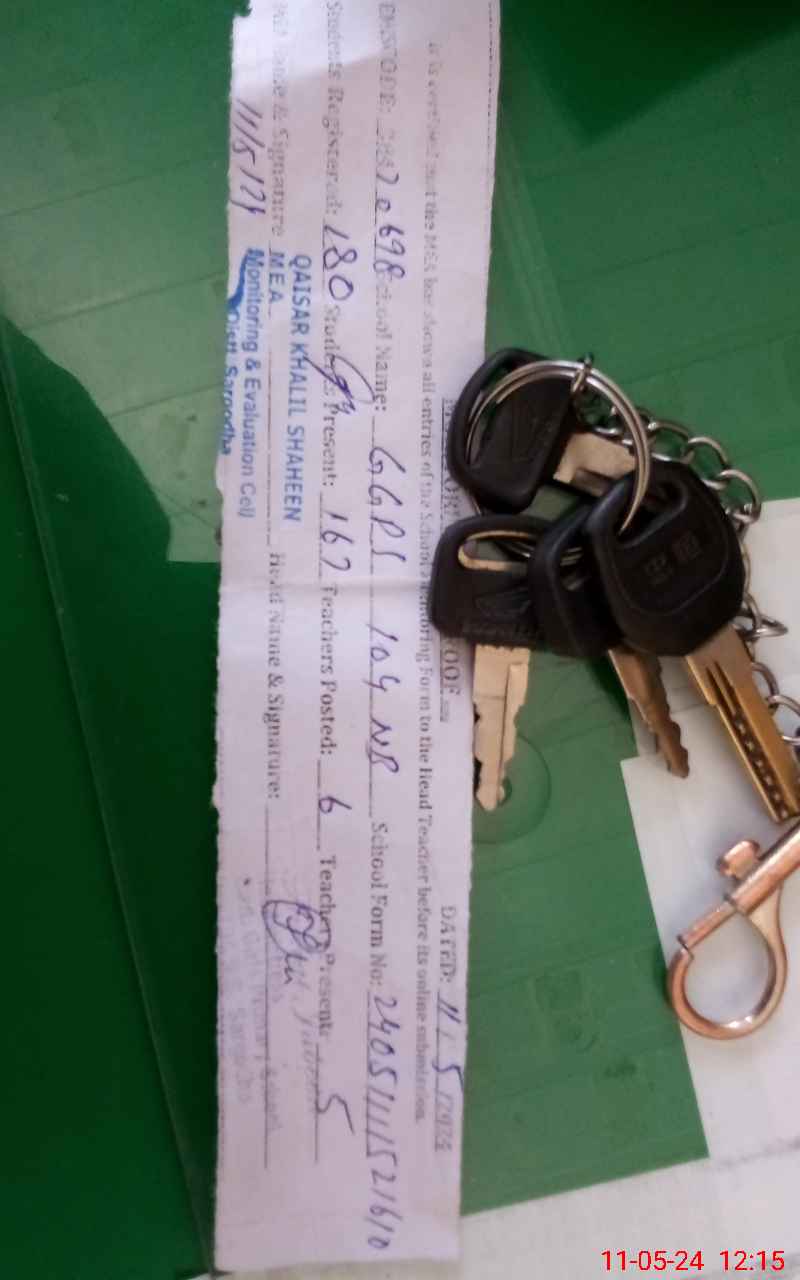 DATED: 11/5/2024
it is certified that the MEA has shown all entries of the School Monitoring Form to the Head Teacher before its online submission.
School Name: GGPS 104 NB School Form No:
Students Registered: 180 Students Present: 167 Teachers Posted: 6 Teachers Present: 5
Name & Signature Head Name & Signature:
11/5/24
QAISAR KHALIL SHAHEEN
MEA
Monitoring & Evaluation Cell
Distt. Sargodha
11-05-24 12:15